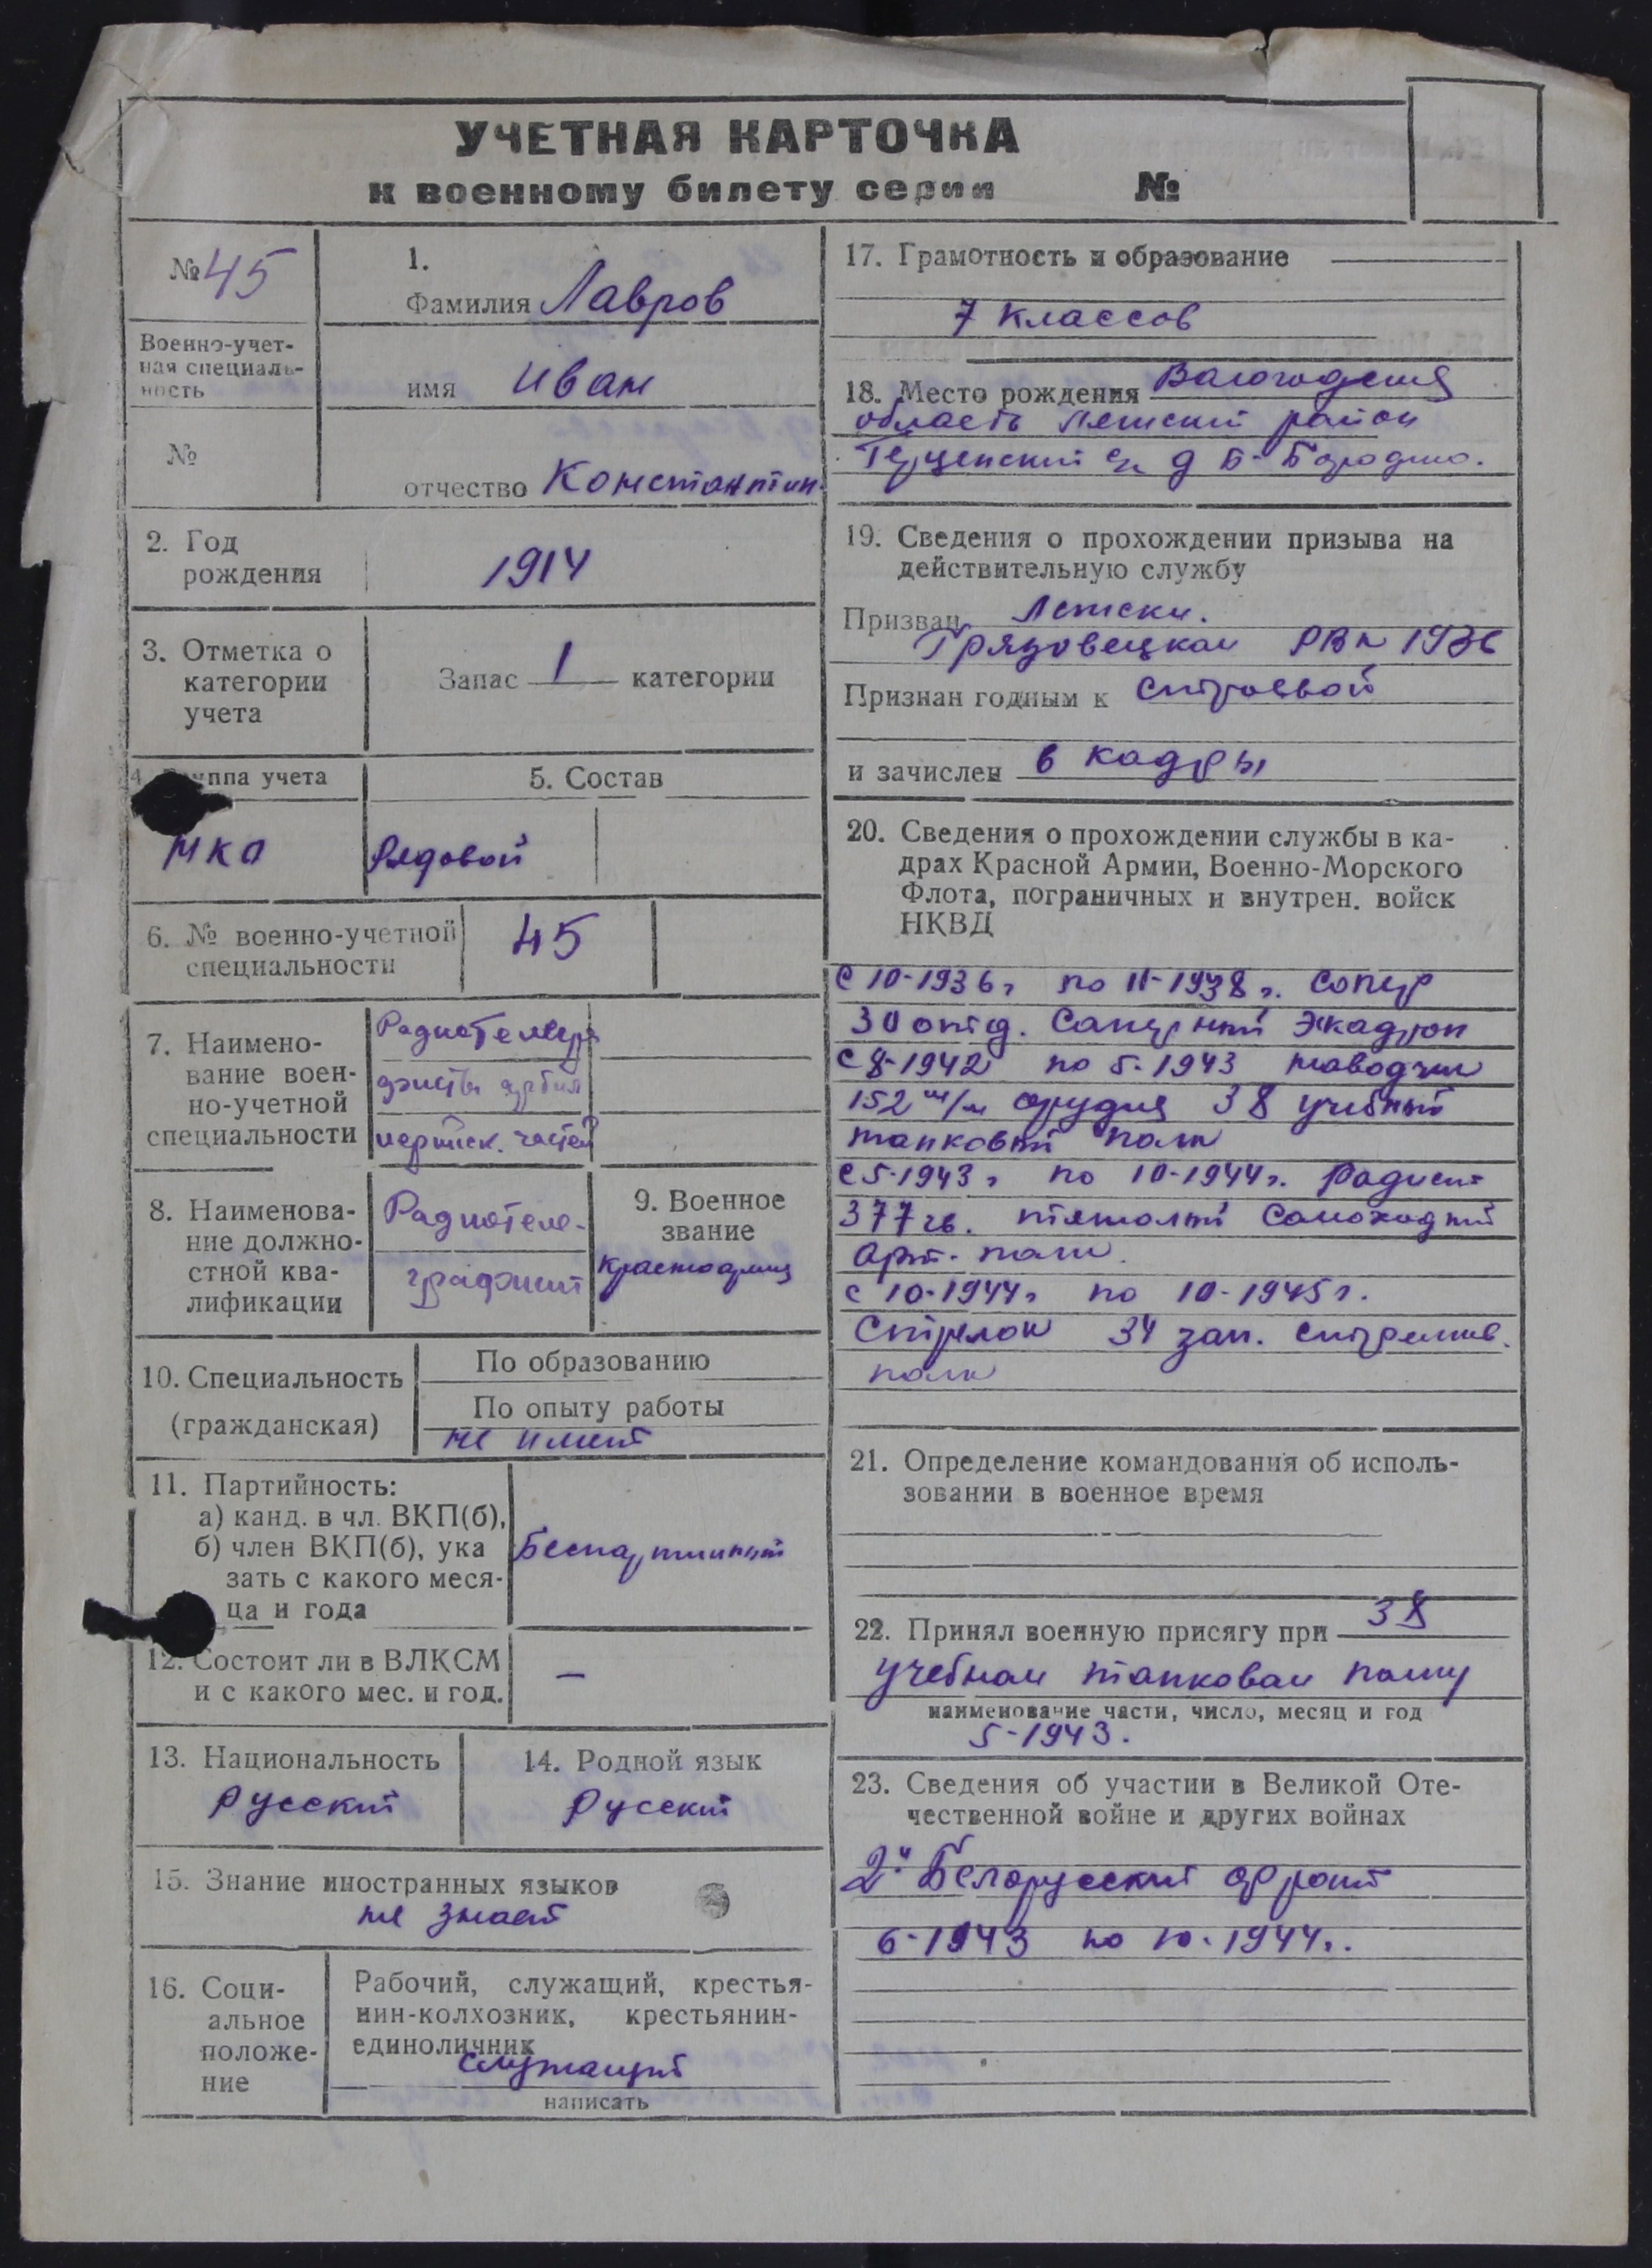 УЧЕТНАЯ КАРТОЧКА
к военному билету серии №
№ 45
Военно-учет-
ная специаль-
ность
№
1.
Фамилия Лавров
имя Иван
отчество Константин
2. Год
рождения
1914
3. Отметка о
категории
учета
Запас 1 категории
4. Группа учета
НКО
5. Состав
Рядовой
6. № военно-учетной
специальности
45
7. Наимено-
вание воен-
но-учетной
специальности
8. Наименова-
ние должно-
стной ква-
лификации
Радиотеле-
графист
9. Военное
звание
Красноармеец
10. Специальность
(гражданская)
По образованию
По опыту работы
не имеет
11. Партийность:
а) канд. в чл. ВКП(б),
б) член ВКП(б), ука
зать с какого меся-
ца и года
Беспартийный
12. Состоит ли в ВЛКСМ
и с какого мес. и год.
—
13. Национальность
Русский
14. Родной язык
Русский
15. Знание иностранных языков
не знает
16. Соци-
альное
положе-
ние
Рабочий, служащий, крестья-
нин-колхозник, крестьянин-
единоличник
служащий
написать
17. Грамотность и образование
7 классов
18. Место рождения Вологодская
область район
с/с д Б-Бородино.
19. Сведения о прохождении призыва на
действительную службу
Призван
Грязовецком РВК 1936
Признан годным к строевой
и зачислен в кадры
20. Сведения о прохождении службы в ка-
драх Красной Армии, Военно-Морского
Флота, пограничных и внутрен. войск
НКВД
С 10-1936 г по 11-1938 г. сапер
30 отд. Саперный Эскадрон
с 8-1942 по 5-1943 наводчик
152 м/м орудия 38 учебный
танковый полк
с 5-1943 г по 10-1944 г. Радист
377 гв. тяжолый Самоходный
арт. полк.
с 10-1944 г по 10-1945 г.
Стрелок 34 зап. стрелков.
полк
21. Определение командования об исполь-
зовании в военное время
22. Принял военную присягу при 38
учебном танковом полку
наименование части, число, месяц и год
5-1943.
23. Сведения об участии в Великой Оте-
чественной войне и других войнах
2й Белорусский фронт
6-1943 по 10-1944 г.